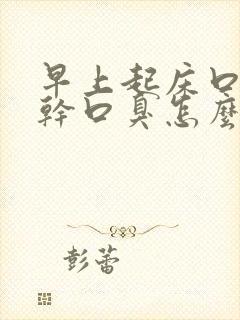 早上起床口
幹口臭怎麼
彭蕾